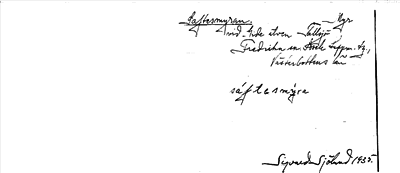 Saftesmyran. Myr
vid sjöde älven Tallsjö
Fredrika sn. Åsele lappm. tg,
Västerbottens län
sáftesmyra
Sigvard Sjölund 1935.